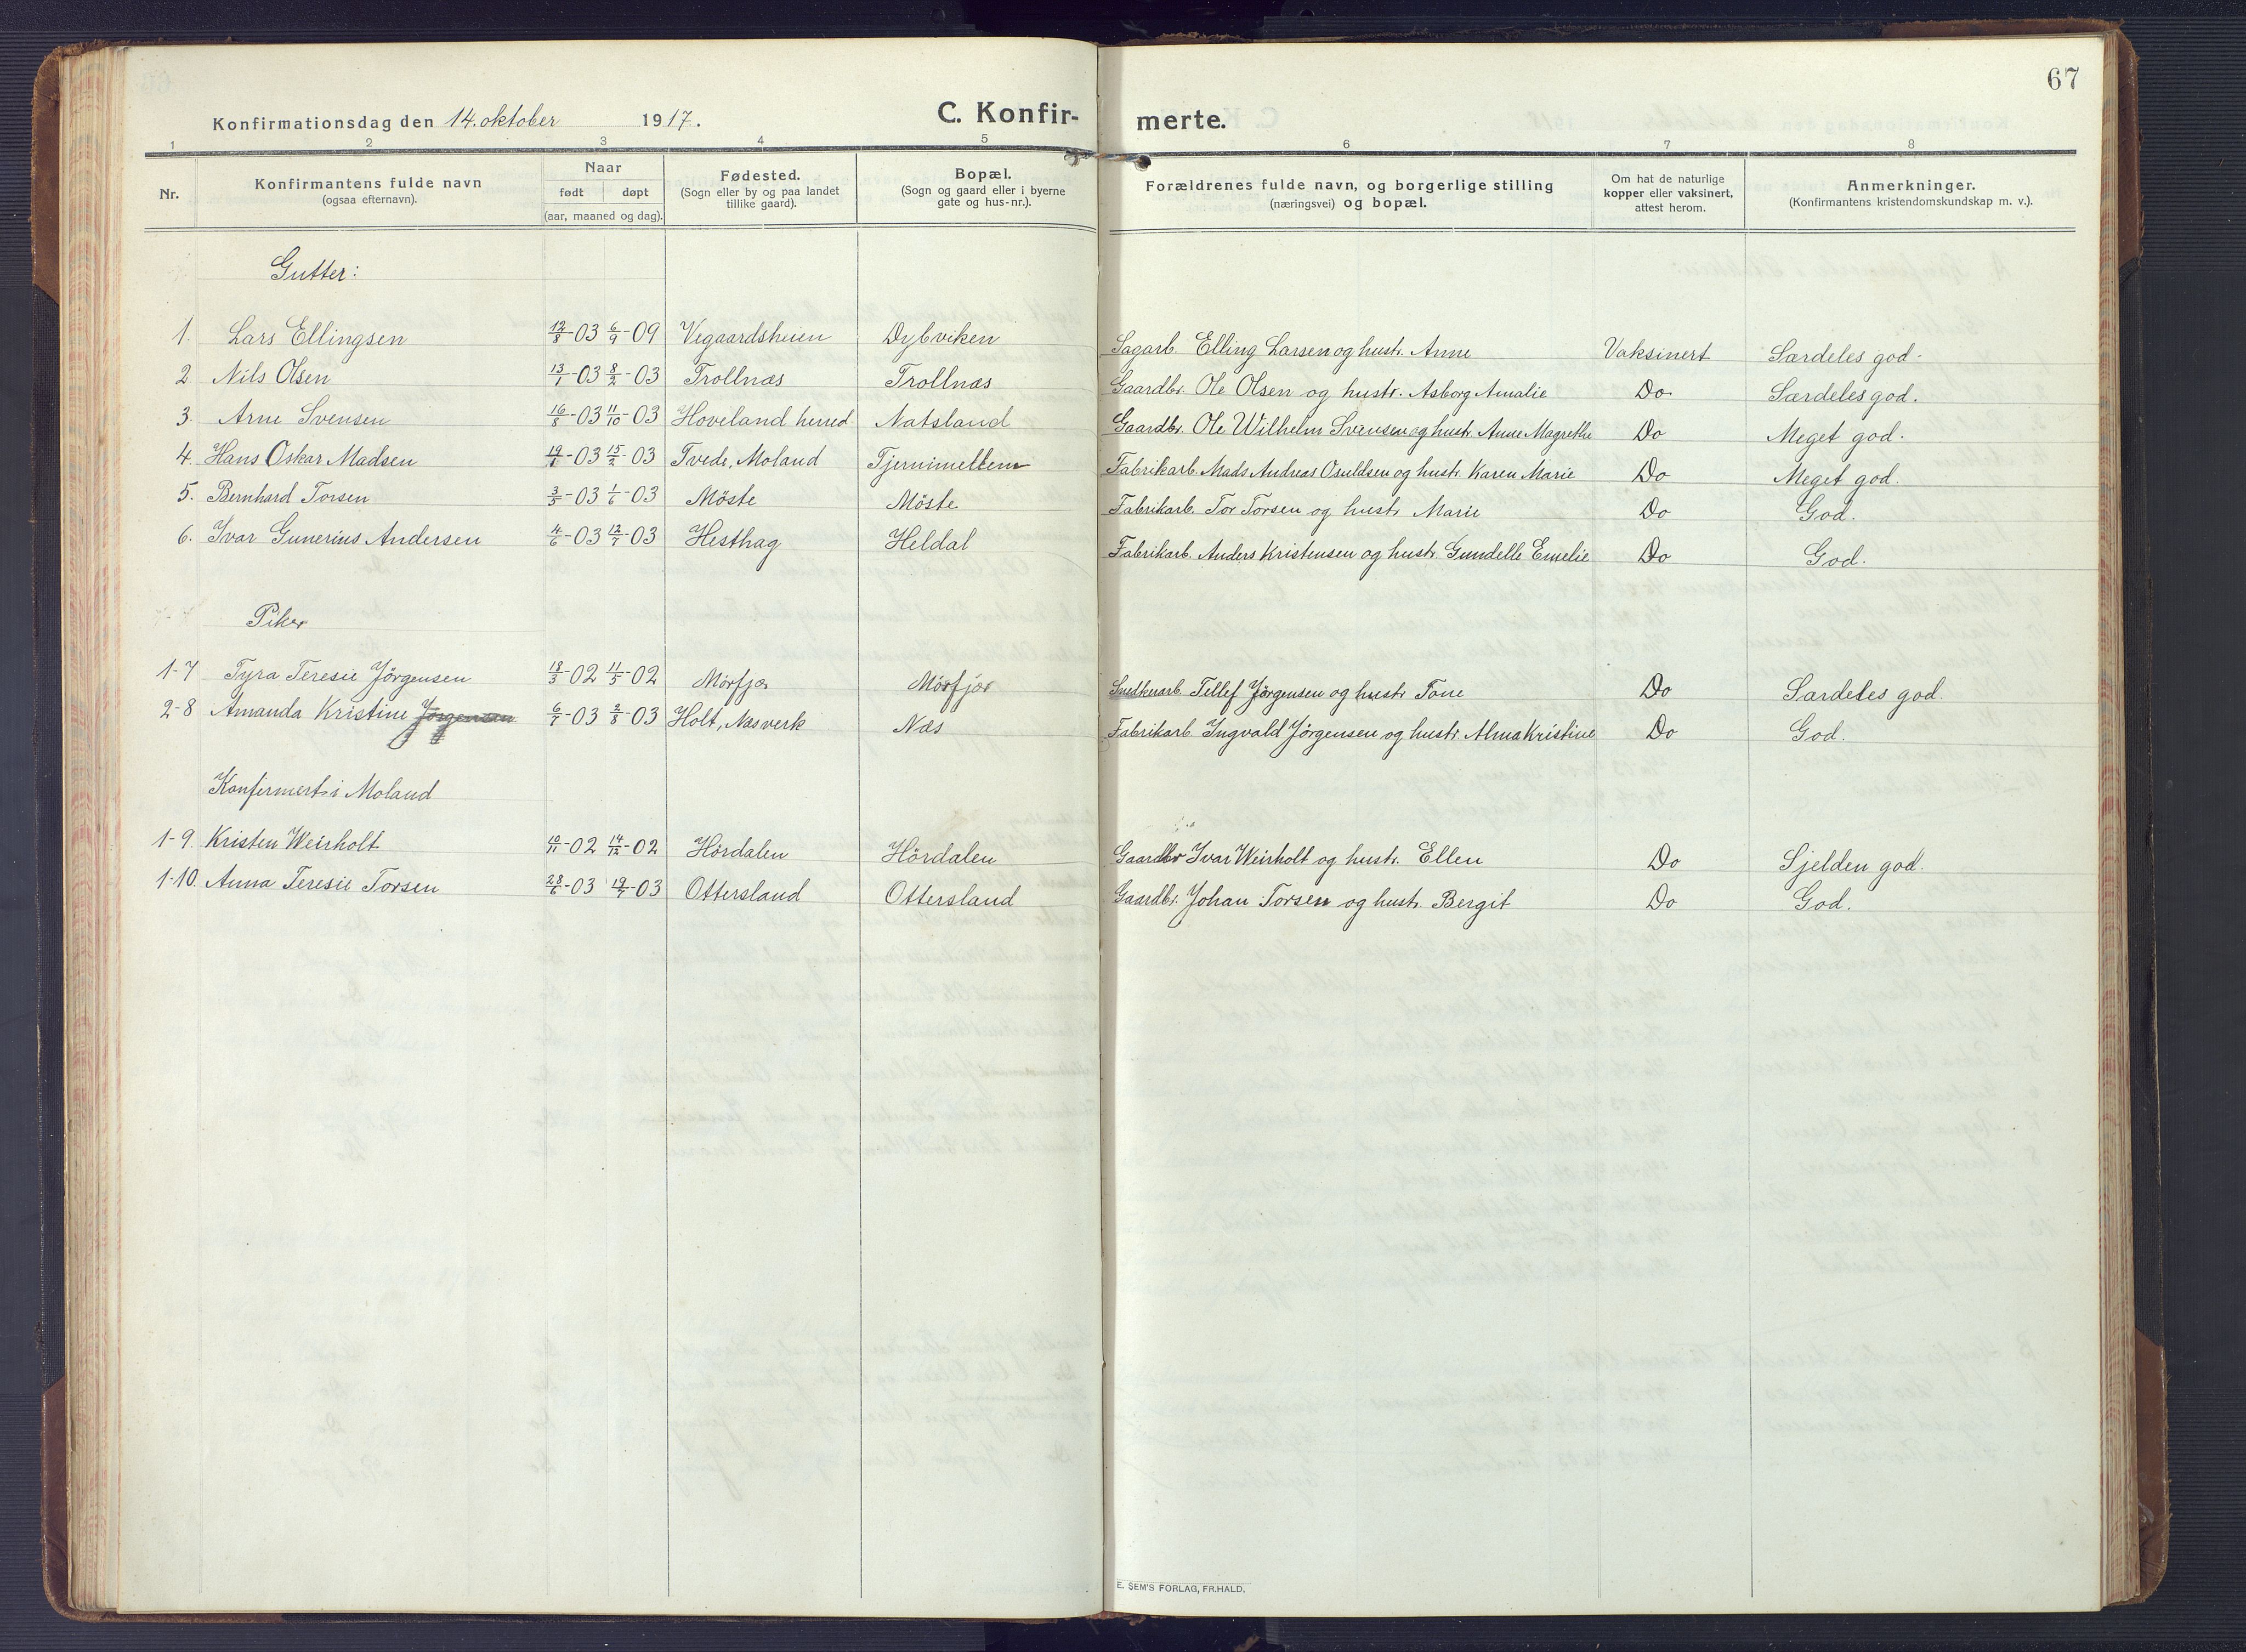 67
Konfirmationsdag den 14. oktober 1917. C. Konfir- merte.
1 2 3 4 5 6 7 8
Nr. Konfirmantens fulde navn (ogsaa efternavn). Naar født døpt (aar, maaned og dag). Fødested. (Sogn eller by og paa landet tillike gaard). Bopæl. (Sogn og gaard eller i byerne gate og hus-nr.). Forældrenes fulde navn, og borgerlige stilling (næringsvei) og bopæl. Om hat de naturlige kopper eller vaksinert, attest herom. Anmerkninger. (Konfirmantens kristendomskundskap m. v.).
Gutter:
1. Lars Ellingsen 12/8-03 6/9-09 Vegaardsheien Dybviken Sagarb. Elling Larsen og hustr. Anne Vaksinert Særdeles god.
2 Nils Olsen 13/1-03 8/2-03 Trollnæs Trollnæs Gaardbr. Ole Olsen og hustr. Asborg Amalie Do Særdeles god.
3. Arne Svensen 16/8-03 11/10-03 Hoveland herred Natsland Gaardbr. Ole Wilhelm Svensen og hustr. Anne Magrethe Do Meget god.
4. Hans Oskar Madsen 19/1-03 15/2-03 Tvede, Moland Tjernimellem Fabrikarb. Mads Andreas Osuldsen og hustr. Karen Marie Do Meget god.
5. Bernhard Torsen 3/5-03 1/6-03 Möste Möste Fabrikarb. Tor Torsen og hustr Marie Do God.
6. Ivar Gunerius Andersen 4/6-03 12/7-03 Hesthag Heldal Fabrikarb. Anders Kristensen og hustr. Gundelle Emelie Do God.
Piker
1-7 Tyra Teresie Jörgensen 18/3-02 11/5-02 Mörfjær Mörfjær Snedkerarb. Tellef Jörgensen og hustr Tone Do Særdeles god.
2-8 Amanda Kristine Jörgensen 6/7-03 2/8-03 Holt, Næsverk Næs Fabrikarb. Ingvald Jörgensen og hustr. Alma Kristine Do God.
Konfirmert i Moland
1-9. Kristen Weirholt 10/11-02 14/12-02 Hördalen Hördalen Gaardbr Ivar Weirholt og hustr. Ellen Do Sjelden god.
1-10. Anna Teresie Torsen 28/6-03 19/7-03 Ottersland Ottersland Gaardbr. Johan Torsen og hustr. Bergit Do God.
E. SEM'S FORLAG, FR.HALD.